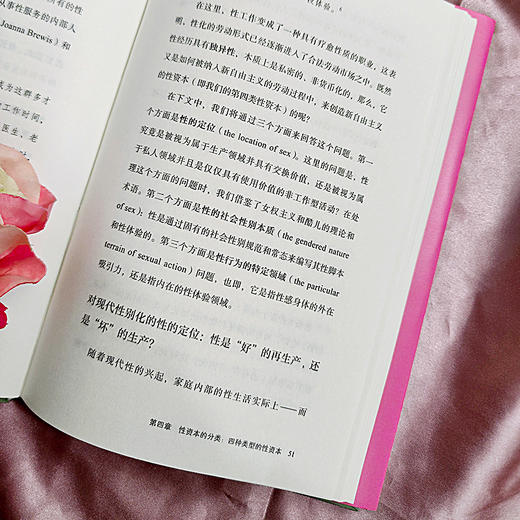 所有的性
从事性服务的内部人
Joanna Brewis）和
成为这群多才
工作时间，
医生、老
体验。⁶
在这里，性工作变成了一种具有疗愈性质的职业，这表
明，性化的劳动形式已经逐渐进入了合法劳动市场之中。既然
性经历具有独异性，本质上是私密的、非货币化的，那么，它
又是如何被纳入新自由主义的劳动过程中，来创造新自由主义
的性资本（即我们的第四类性资本）的呢？
在下文中，我们将通过三个方面来回答这个问题。第一
个方面是性的定位（the location of sex）。这里的问题是，性
究竟是被视为属于生产领域并具有交换价值，还是被视为属
于私人领域并且是仅仅具有使用价值的非工作型活动？在处
理这个方面的问题时，我们借鉴了女权主义和酷儿的理论和
术语。第二个方面是性的社会性别本质（the gendered nature
of sex）：性是通过固有的社会性别规范和常态来编写其性脚本
和性体验的。第三个方面是性行为的特定领域（the particular
terrain of sexual action）问题，也即，它是指性感身体的外在
吸引力，还是指内在的性体验领域。
对现代性别化的性的定位：性是“好”的再生产，还
是“坏”的生产？
随着现代性的兴起，家庭内部的性生活实际上——而
第四章 性资本的分类：四种类型的性资本 51